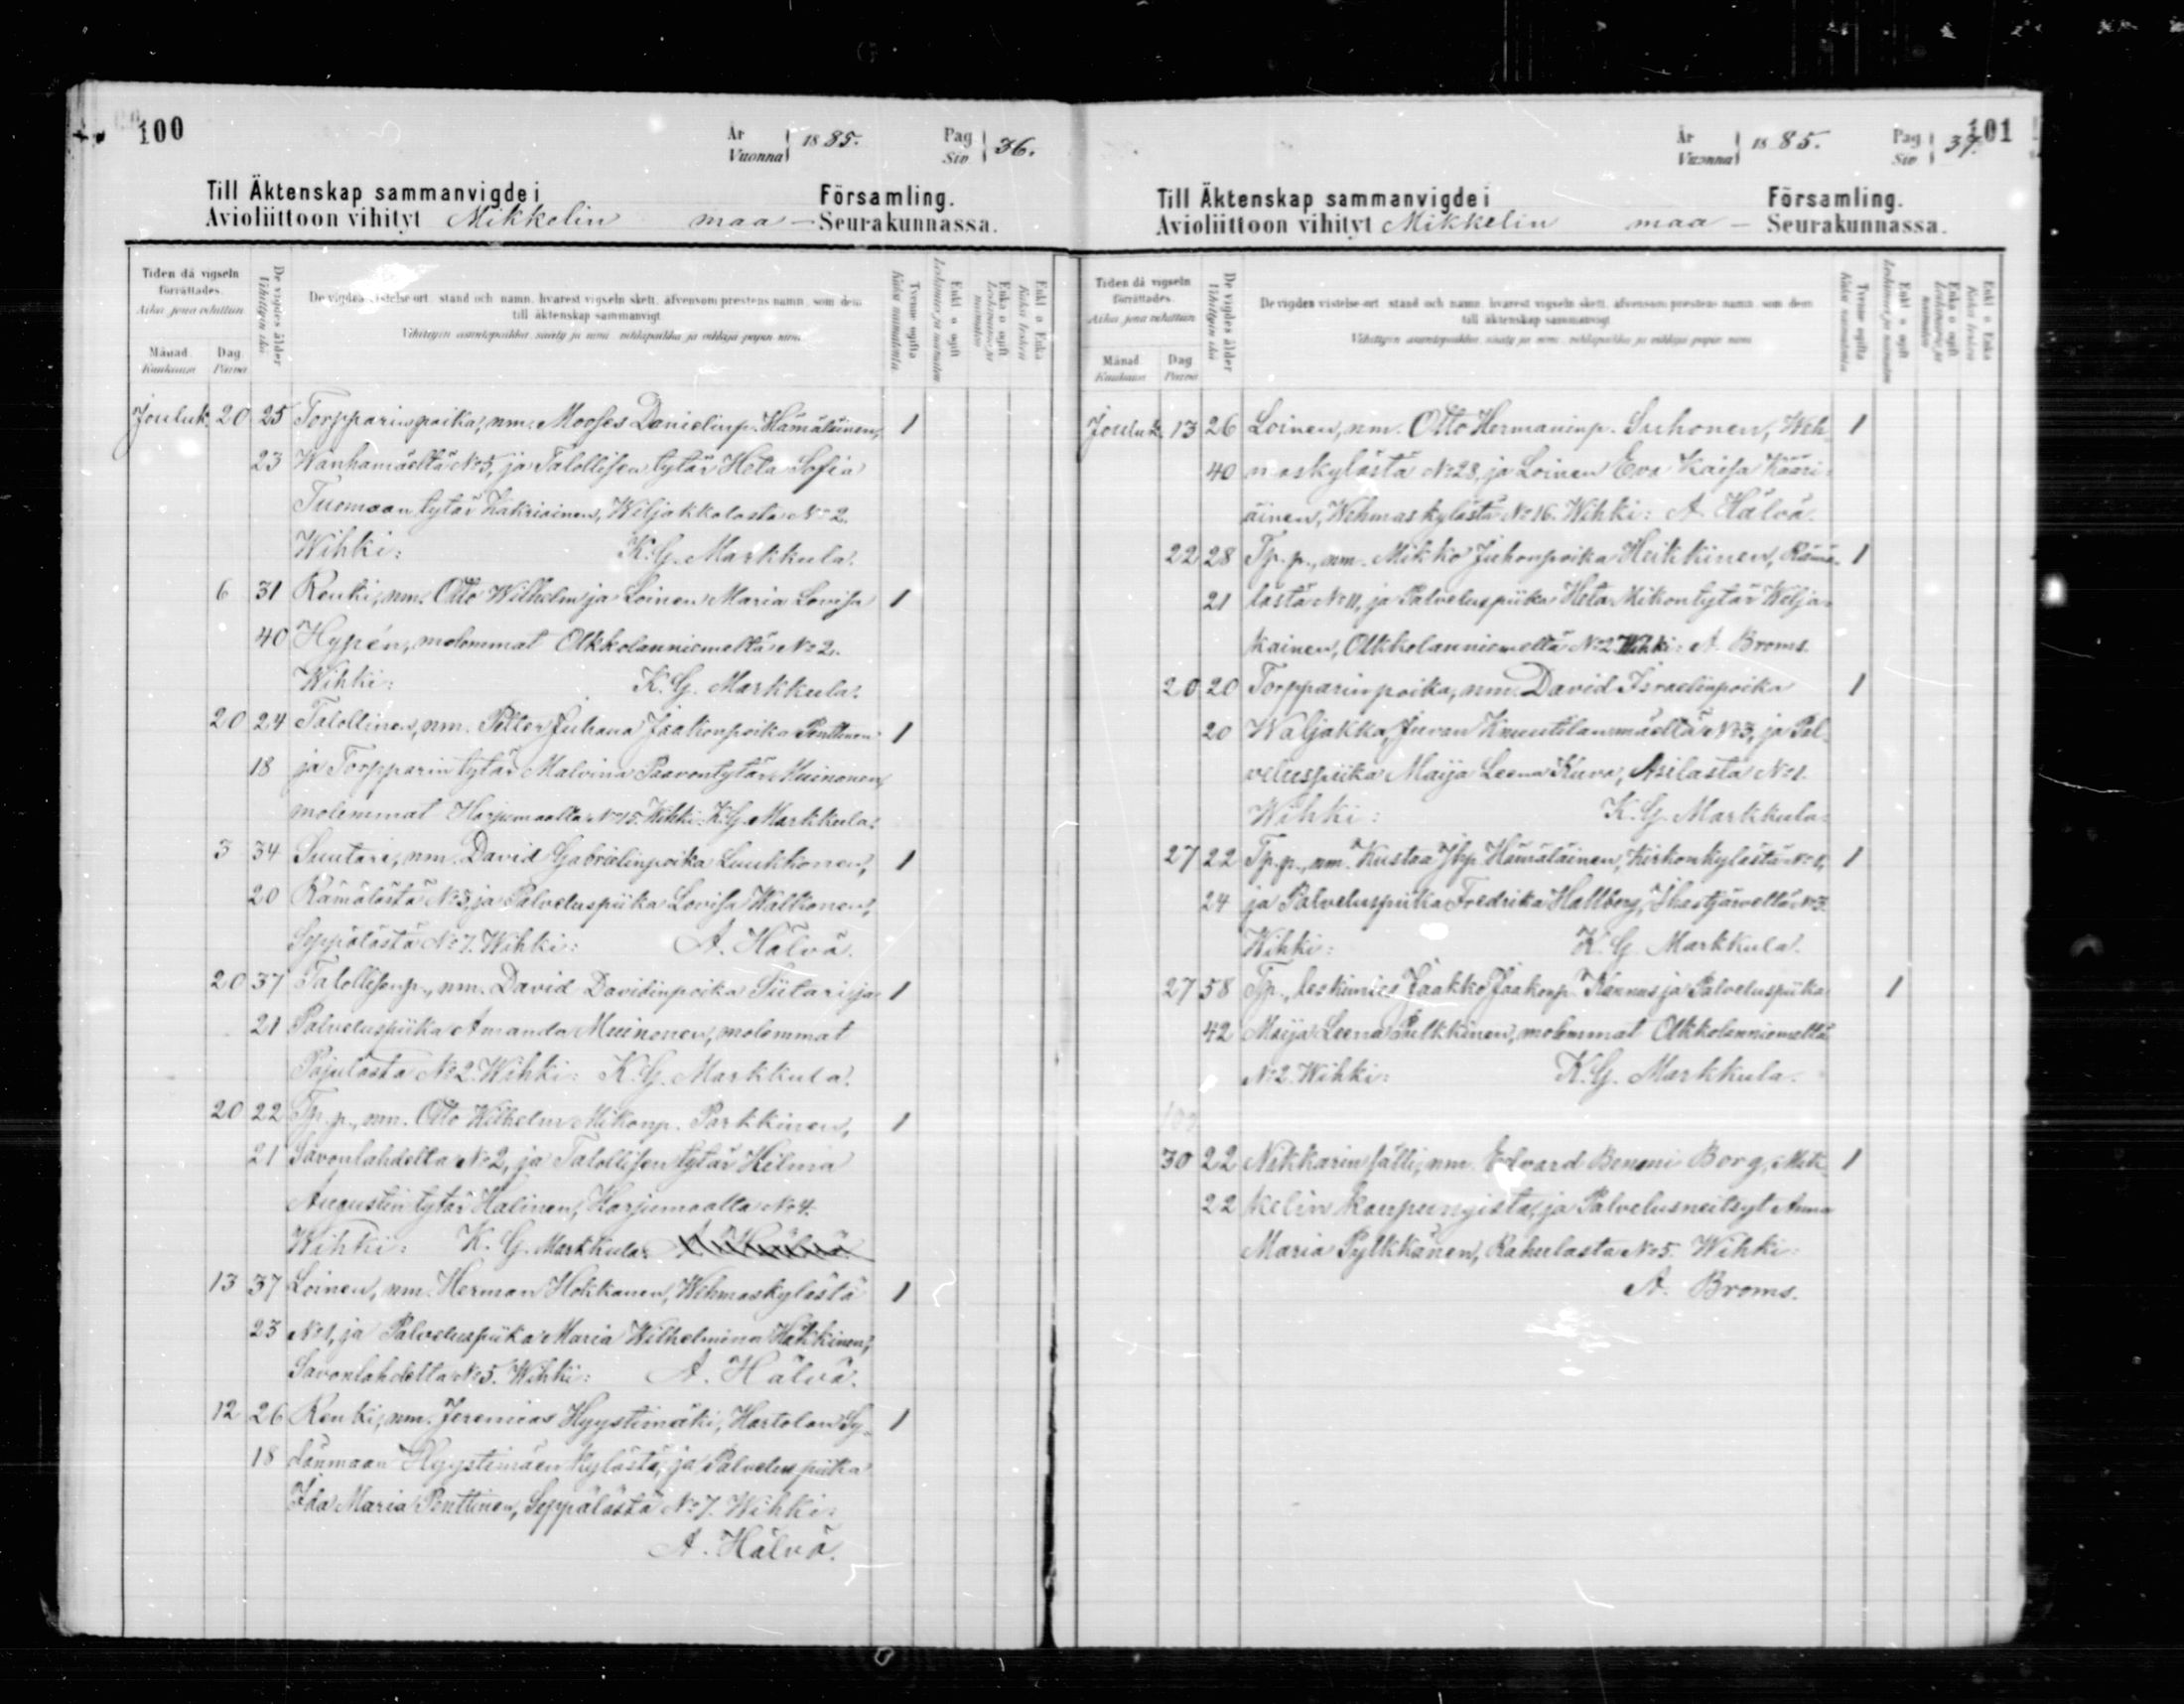 100
År
Vuonna 1885.
Pag
Siv 36.
Till Äktenskap sammanvigde i Församling.
Avioliittoon vihityt Mikkelin maa- Seurakunnassa.
Tiden då vigseln förrättades.
Aika jona vihittiin
Månad. Kuukausi
Dag. Päivä
De vigdes ålder
Vihittyin ikä
De vigdes vistelse ort, stand och namn, hvarest vigseln skett, äfvensom prestens namn, som dem
till äktenskap sammanvigt.
Vihittyin asuntopaikka, sääty ja nimi, vihkipaikka ja vihkijä papin nimi
Tvenne ogifta
Kaksi naimatonta
Enkl. o. ogift
Leskimies ja naimaton
Enka o. ogift
Leskivaimo ja naimaton
Enkl. o. Enka
Kaksi leskeä
Jouluk. 20 25 Torpparin poika, nm. Mooses Danielinp. Hämäläinen, 1
23 Wanhamäeltä No 5, ja Talollisen tytär Heta Sofia
Tuomaan tytär Zakriainen, Wiljakkalasta No 2.
Wihki: K. G. Markkula.
6 31 Renki, nm. Otto Wilhelm ja Loinen Maria Lovisa 1
40 Hypén, molemmat Olkkolanniemeltä No 2.
Wihki: K. G. Markkula.
20 24 Talollinen, nm. Petter Juhana Jaakonpoika Penttinen 1
18 ja Torpparin tytär Malvina Paavontytär Muinonen,
molemmat Harjumaalta No 15. Wihki: K. G. Markkula.
3 34 Suutari, nm. David Gabrielinpoika Luukkonen, 1
20 Rämälästä No 3, ja Palveluspiika Lovisa Walkonen,
Seppälästä No 7. Wihki: A. Hälvä.
20 37 Talollisenp., nm. David Davidinpoika Siitari ja 1
21 Palveluspiika Amanda Muinonen, molemmat
Pajulasta No 2. Wihki: K. G. Markkula.
20 22 Tp. p., nm. Otto Wilhelm Mikonp. Parkkinen, 1
21 Savonlahdelta No 2, ja Talollisen tytär Hilma
Augustin tytär Halinen, Harjumaalta No 4.
Wihki: K. G. Markkula.
13 37 Loinen, nm. Herman Hokkanen, Wehmaskylästä 1
23 No 1, ja Palveluspiika Maria Wilhelmina Häkkinen,
Savonlahdelta No 5. Wihki: A. Hälvä.
12 26 Renki, nm. Jeremias Hyystinmäki, Hartolan Sy- 1
18 dänmaan Hyystimäen kylästä, ja Palveluspiika
Ida Maria Penttinen, Seppälästä No 7. Wihki:
A. Hälvä.
101
År
Vuonna 1885.
Pag
Siv 37.
Till Äktenskap sammanvigde i Församling.
Avioliittoon vihityt Mikkelin maa- Seurakunnassa.
Tiden då vigseln förrättades.
Aika jona vihittiin
Månad. Kuukausi
Dag. Päivä
De vigdes ålder
Vihittyin ikä
De vigdes vistelse-ort, stand och namn, hvarest vigseln skett, äfvensom prestens namn, som dem
till äktenskap sammanvigt
Vihittyin asuntopaikka, sääty ja nimi, vihkipaikka ja vihkijä papin nimi
Tvenne ogifta
Kaksi naimatonta
Enkl. o. ogift
Leskimies ja naimaton
Enka o. ogift
Leskivaimo ja naimaton
Enkl. o. Enka
Kaksi leskeä
Jouluk. 13 26 Loinen, nm. Otto Hermaninp. Suhonen, Weh- 1
40 maskylästä No 28, ja Loinen Eva Kaisa Kääri-
äinen, Wehmaskylästä No 16. Wihki: A. Hälvä.
22 28 Tp. p., nm. Mikko Juhonpoika Heikkinen, Rämä- 1
21 lästä No 11, ja Palveluspiika Heta Mikontytär Wilja-
kainen, Olkkolanniemeltä No 2. Wihki: A. Broms.
20 20 Torpparin poika, nm. David Israelinpoika 1
20 Waljakka, Juvan Knuutilanmäeltä No 3, ja Pal-
veluspiika Maija Leena Kuva, Asilasta No 1.
Wihki: K. G. Markkula.
27 22 Tp. p., nm. Kustaa Jhp. Hämäläinen, Kirkonkylästä No 1, 1
24 ja Palveluspiika Fredrika Hallberg, Ihastjärveltä No 3.
Wihki: K. G. Markkula.
27 58 Tp., leskimies Jaakko Jaakonp. Kannas ja Palveluspiika 1
42 Maija Leena Pulkkinen, molemmat Olkkolanniemeltä
No 2. Wihki: K. G. Markkula.
30 22 Nikkarin sälli, nm. Edvard Benoni Borg, Mik- 1
22 kelin kaupungista, ja Palvelusneitsyt Anna
Maria Pylkkänen, Rahulasta No 5. Wihki:
A. Broms.